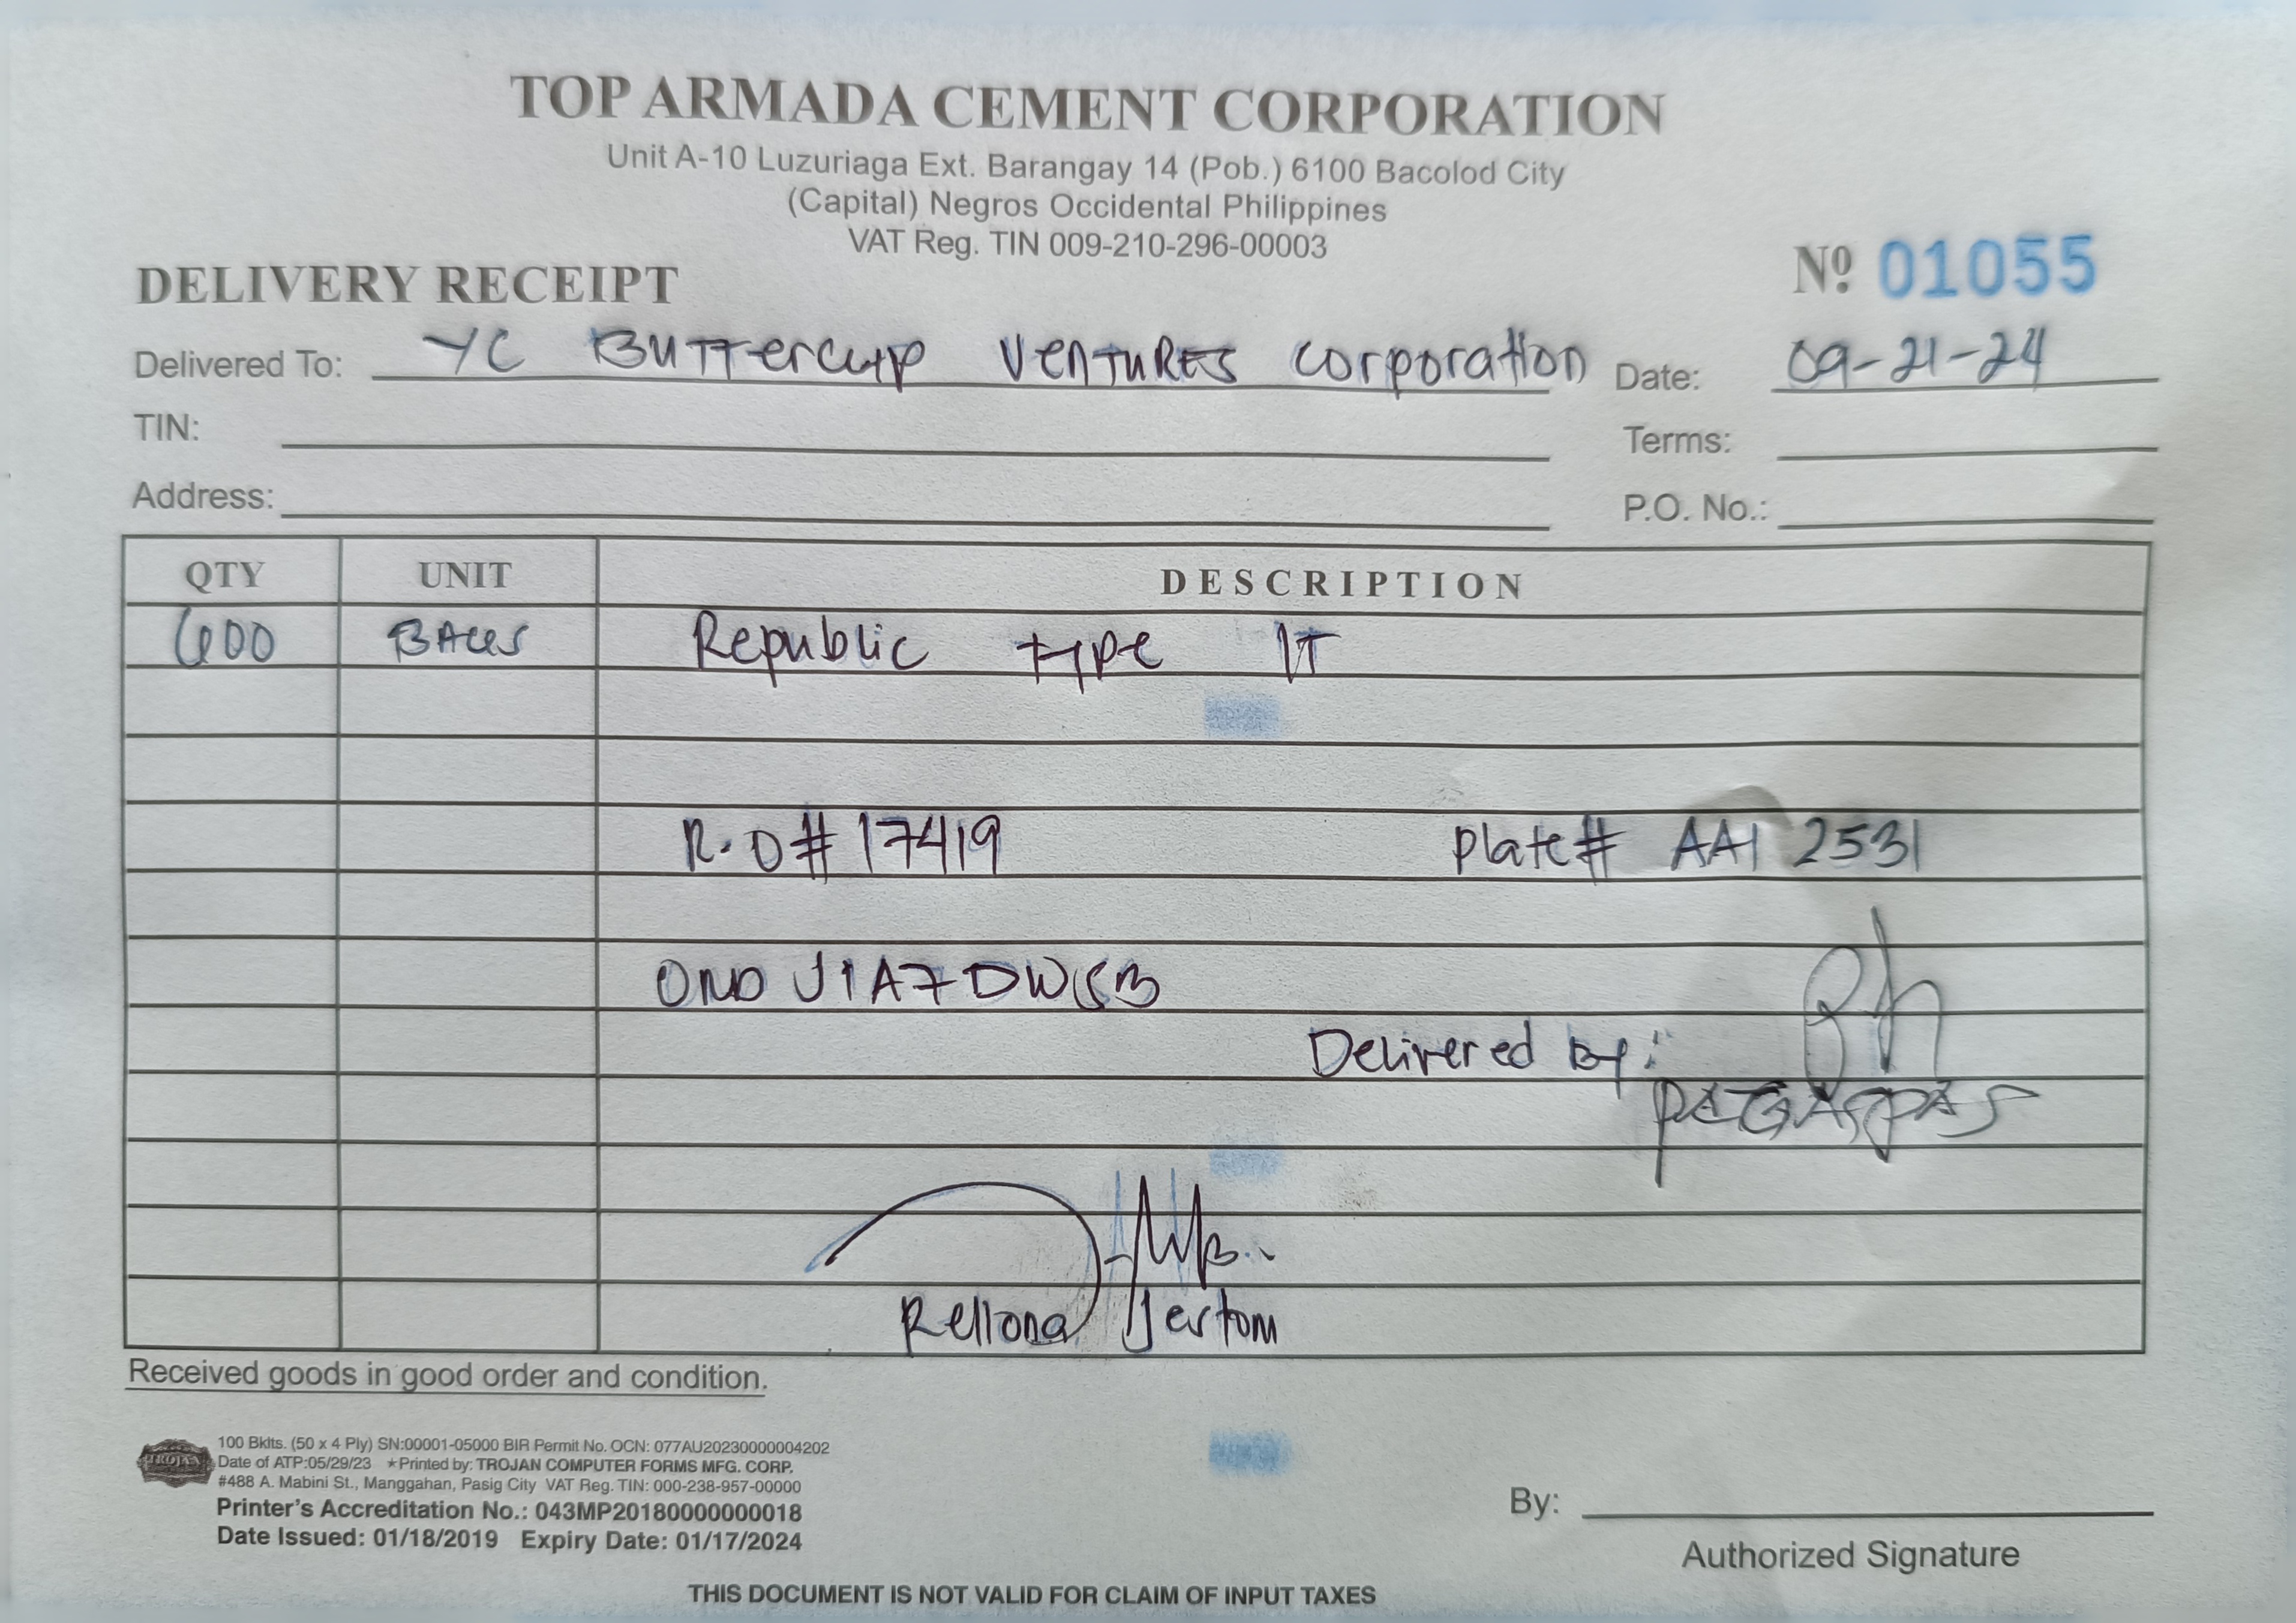 TOP ARMADA CEMENT CORPORATION
Unit A-10 Luzuriaga Ext. Barangay 14 (Pob.) 6100 Bacolod City
(Capital) Negros Occidental Philippines
VAT Reg. TIN 009-210-296-00003
DELIVERY RECEIPT Nº 01055
Delivered To: YC Buttercup Ventures Corporation Date: 09-21-24
TIN: Terms:
Address: P.O. No.:
QTY UNIT DESCRIPTION
600 BAGS Republic type 1T
R.O# 17419 Plate# AAI 2531
Delivered By:
PEGASPAS
Rellona Jestom
Received goods in good order and condition.
TROJAN
100 Bklts. (50 x 4 Ply) SN:00001-05000 BIR Permit No. OCN: 077AU20230000004202
Date of ATP:05/29/23 ★Printed by: TROJAN COMPUTER FORMS MFG. CORP.
#488 A. Mabini St., Manggahan, Pasig City VAT Reg. TIN: 000-238-957-00000
Printer's Accreditation No.: 043MP20180000000018
Date Issued: 01/18/2019 Expiry Date: 01/17/2024
By:
Authorized Signature
THIS DOCUMENT IS NOT VALID FOR CLAIM OF INPUT TAXES